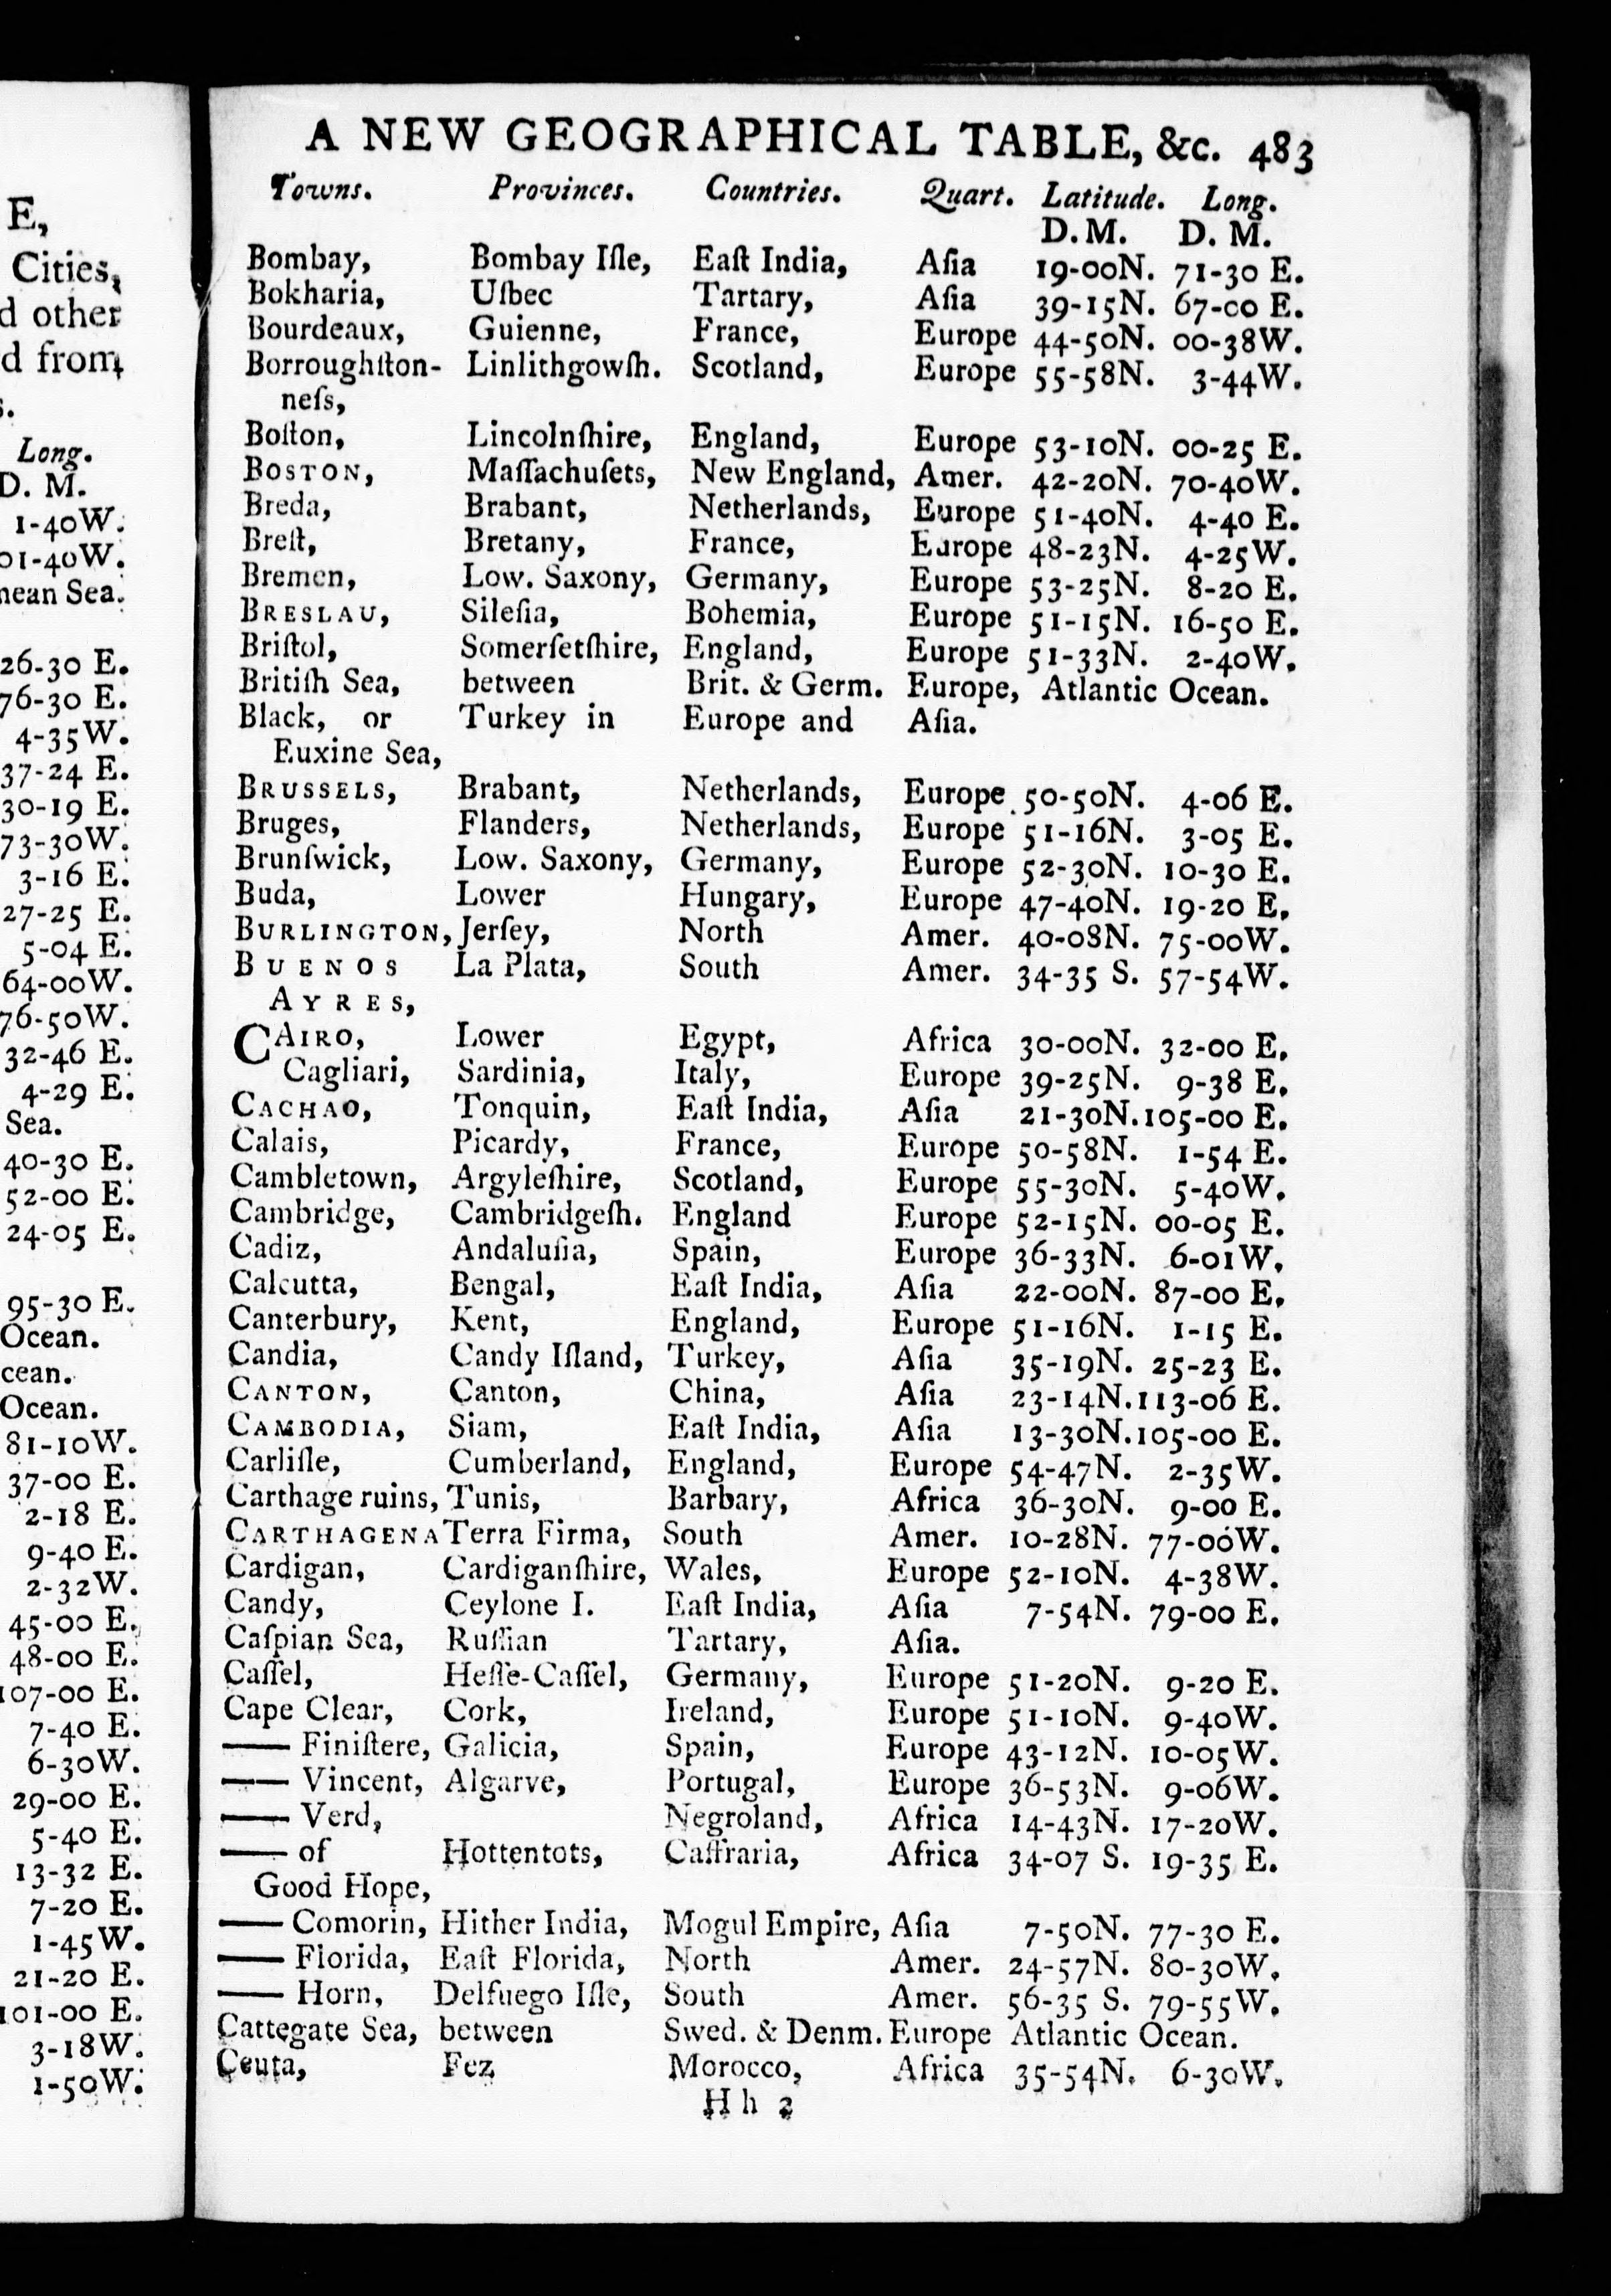 E,
Cities,
d other
d from
s.
Long.
D. M.
1-40W.
01-40W.
nean Sea.
26-30 E.
76-30 E.
4-35W.
37-24 E.
30-19 E.
73-30W.
3-16 E.
27-25 E.
5-04 E.
64-00W.
76-50W.
32-46 E.
4-29 E.
Sea.
40-30 E.
52-00 E.
24-05 E.
95-30 E.
Ocean.
cean.
Ocean.
81-10W.
37-00 E.
2-18 E.
9-40 E.
2-32W.
45-00 E.
48-00 E.
107-00 E.
7-40 E.
6-30W.
29-00 E.
5-40 E.
13-32 E.
7-20 E.
1-45W.
21-20 E.
101-00 E.
3-18W.
1-50W.
A NEW GEOGRAPHICAL TABLE, &c. 483
Towns. Provinces. Countries. Quart. Latitude. Long.
D. M. D. M.
Bombay, Bombay Iſle, Eaſt India, Aſia 19-00N. 71-30 E.
Bokharia, Uſbec Tartary, Aſia 39-15N. 67-00 E.
Bourdeaux, Guienne, France, Europe 44-50N. 00-38W.
Borroughſton- Linlithgowſh. Scotland, Europe 55-58N. 3-44W.
neſs,
Boſton, Lincolnſhire, England, Europe 53-10N. 00-25 E.
BOSTON, Maſſachuſets, New England, Amer. 42-20N. 70-40W.
Breda, Brabant, Netherlands, Europe 51-40N. 4-40 E.
Breſt, Bretany, France, Europe 48-23N. 4-25W.
Bremen, Low. Saxony, Germany, Europe 53-25N. 8-20 E.
BRESLAU, Sileſia, Bohemia, Europe 51-15N. 16-50 E.
Briſtol, Somerſetſhire, England, Europe 51-33N. 2-40W.
Britiſh Sea, between Brit. & Germ. Europe, Atlantic Ocean.
Black, or Turkey in Europe and Aſia.
Euxine Sea,
BRUSSELS, Brabant, Netherlands, Europe 50-50N. 4-06 E.
Bruges, Flanders, Netherlands, Europe 51-16N. 3-05 E.
Brunſwick, Low. Saxony, Germany, Europe 52-30N. 10-30 E.
Buda, Lower Hungary, Europe 47-40N. 19-20 E.
BURLINGTON, Jerſey, North Amer. 40-08N. 75-00W.
BUENOS La Plata, South Amer. 34-35 S. 57-54W.
AYRES,
CAIRO, Lower Egypt, Africa 30-00N. 32-00 E.
Cagliari, Sardinia, Italy, Europe 39-25N. 9-38 E.
CACHAO, Tonquin, Eaſt India, Aſia 21-30N. 105-00 E.
Calais, Picardy, France, Europe 50-58N. 1-54 E.
Cambletown, Argyleſhire, Scotland, Europe 55-30N. 5-40W.
Cambridge, Cambridgeſh. England Europe 52-15N. 00-05 E.
Cadiz, Andaluſia, Spain, Europe 36-33N. 6-01W.
Calcutta, Bengal, Eaſt India, Aſia 22-00N. 87-00 E.
Canterbury, Kent, England, Europe 51-16N. 1-15 E.
Candia, Candy Iſland, Turkey, Aſia 35-19N. 25-23 E.
CANTON, Canton, China, Aſia 23-14N. 113-06 E.
CAMBODIA, Siam, Eaſt India, Aſia 13-30N. 105-00 E.
Carliſle, Cumberland, England, Europe 54-47N. 2-35W.
Carthage ruins, Tunis, Barbary, Africa 36-30N. 9-00 E.
CARTHAGENA Terra Firma, South Amer. 10-28N. 77-00W.
Cardigan, Cardiganſhire, Wales, Europe 52-10N. 4-38W.
Candy, Ceylone I. Eaſt India, Aſia 7-54N. 79-00 E.
Caſpian Sea, Ruſſian Tartary, Aſia.
Caſſel, Heſſe-Caſſel, Germany, Europe 51-20N. 9-20 E.
Cape Clear, Cork, Ireland, Europe 51-10N. 9-40W.
—— Finiſtere, Galicia, Spain, Europe 43-12N. 10-05W.
—— Vincent, Algarve, Portugal, Europe 36-53N. 9-06W.
—— Verd, Negroland, Africa 14-43N. 17-20W.
—— of Hottentots, Caffraria, Africa 34-07 S. 19-35 E.
Good Hope,
—— Comorin, Hither India, Mogul Empire, Aſia 7-50N. 77-30 E.
—— Florida, Eaſt Florida, North Amer. 24-57N. 80-30W.
—— Horn, Delfuego Iſle, South Amer. 56-35 S. 79-55W.
Cattegate Sea, between Swed. & Denm. Europe Atlantic Ocean.
Ceuta, Fez Morocco, Africa 35-54N. 6-30W.
H h 2